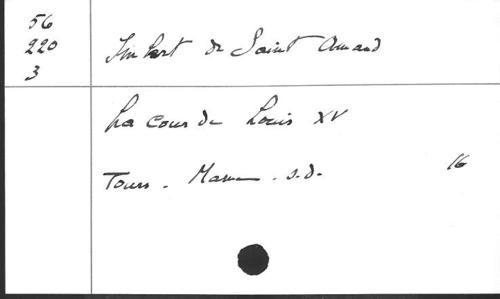 56
220
3
Imbert de Saint Amand
La cour de Louis XV
Tours. Mame. s.d. 16